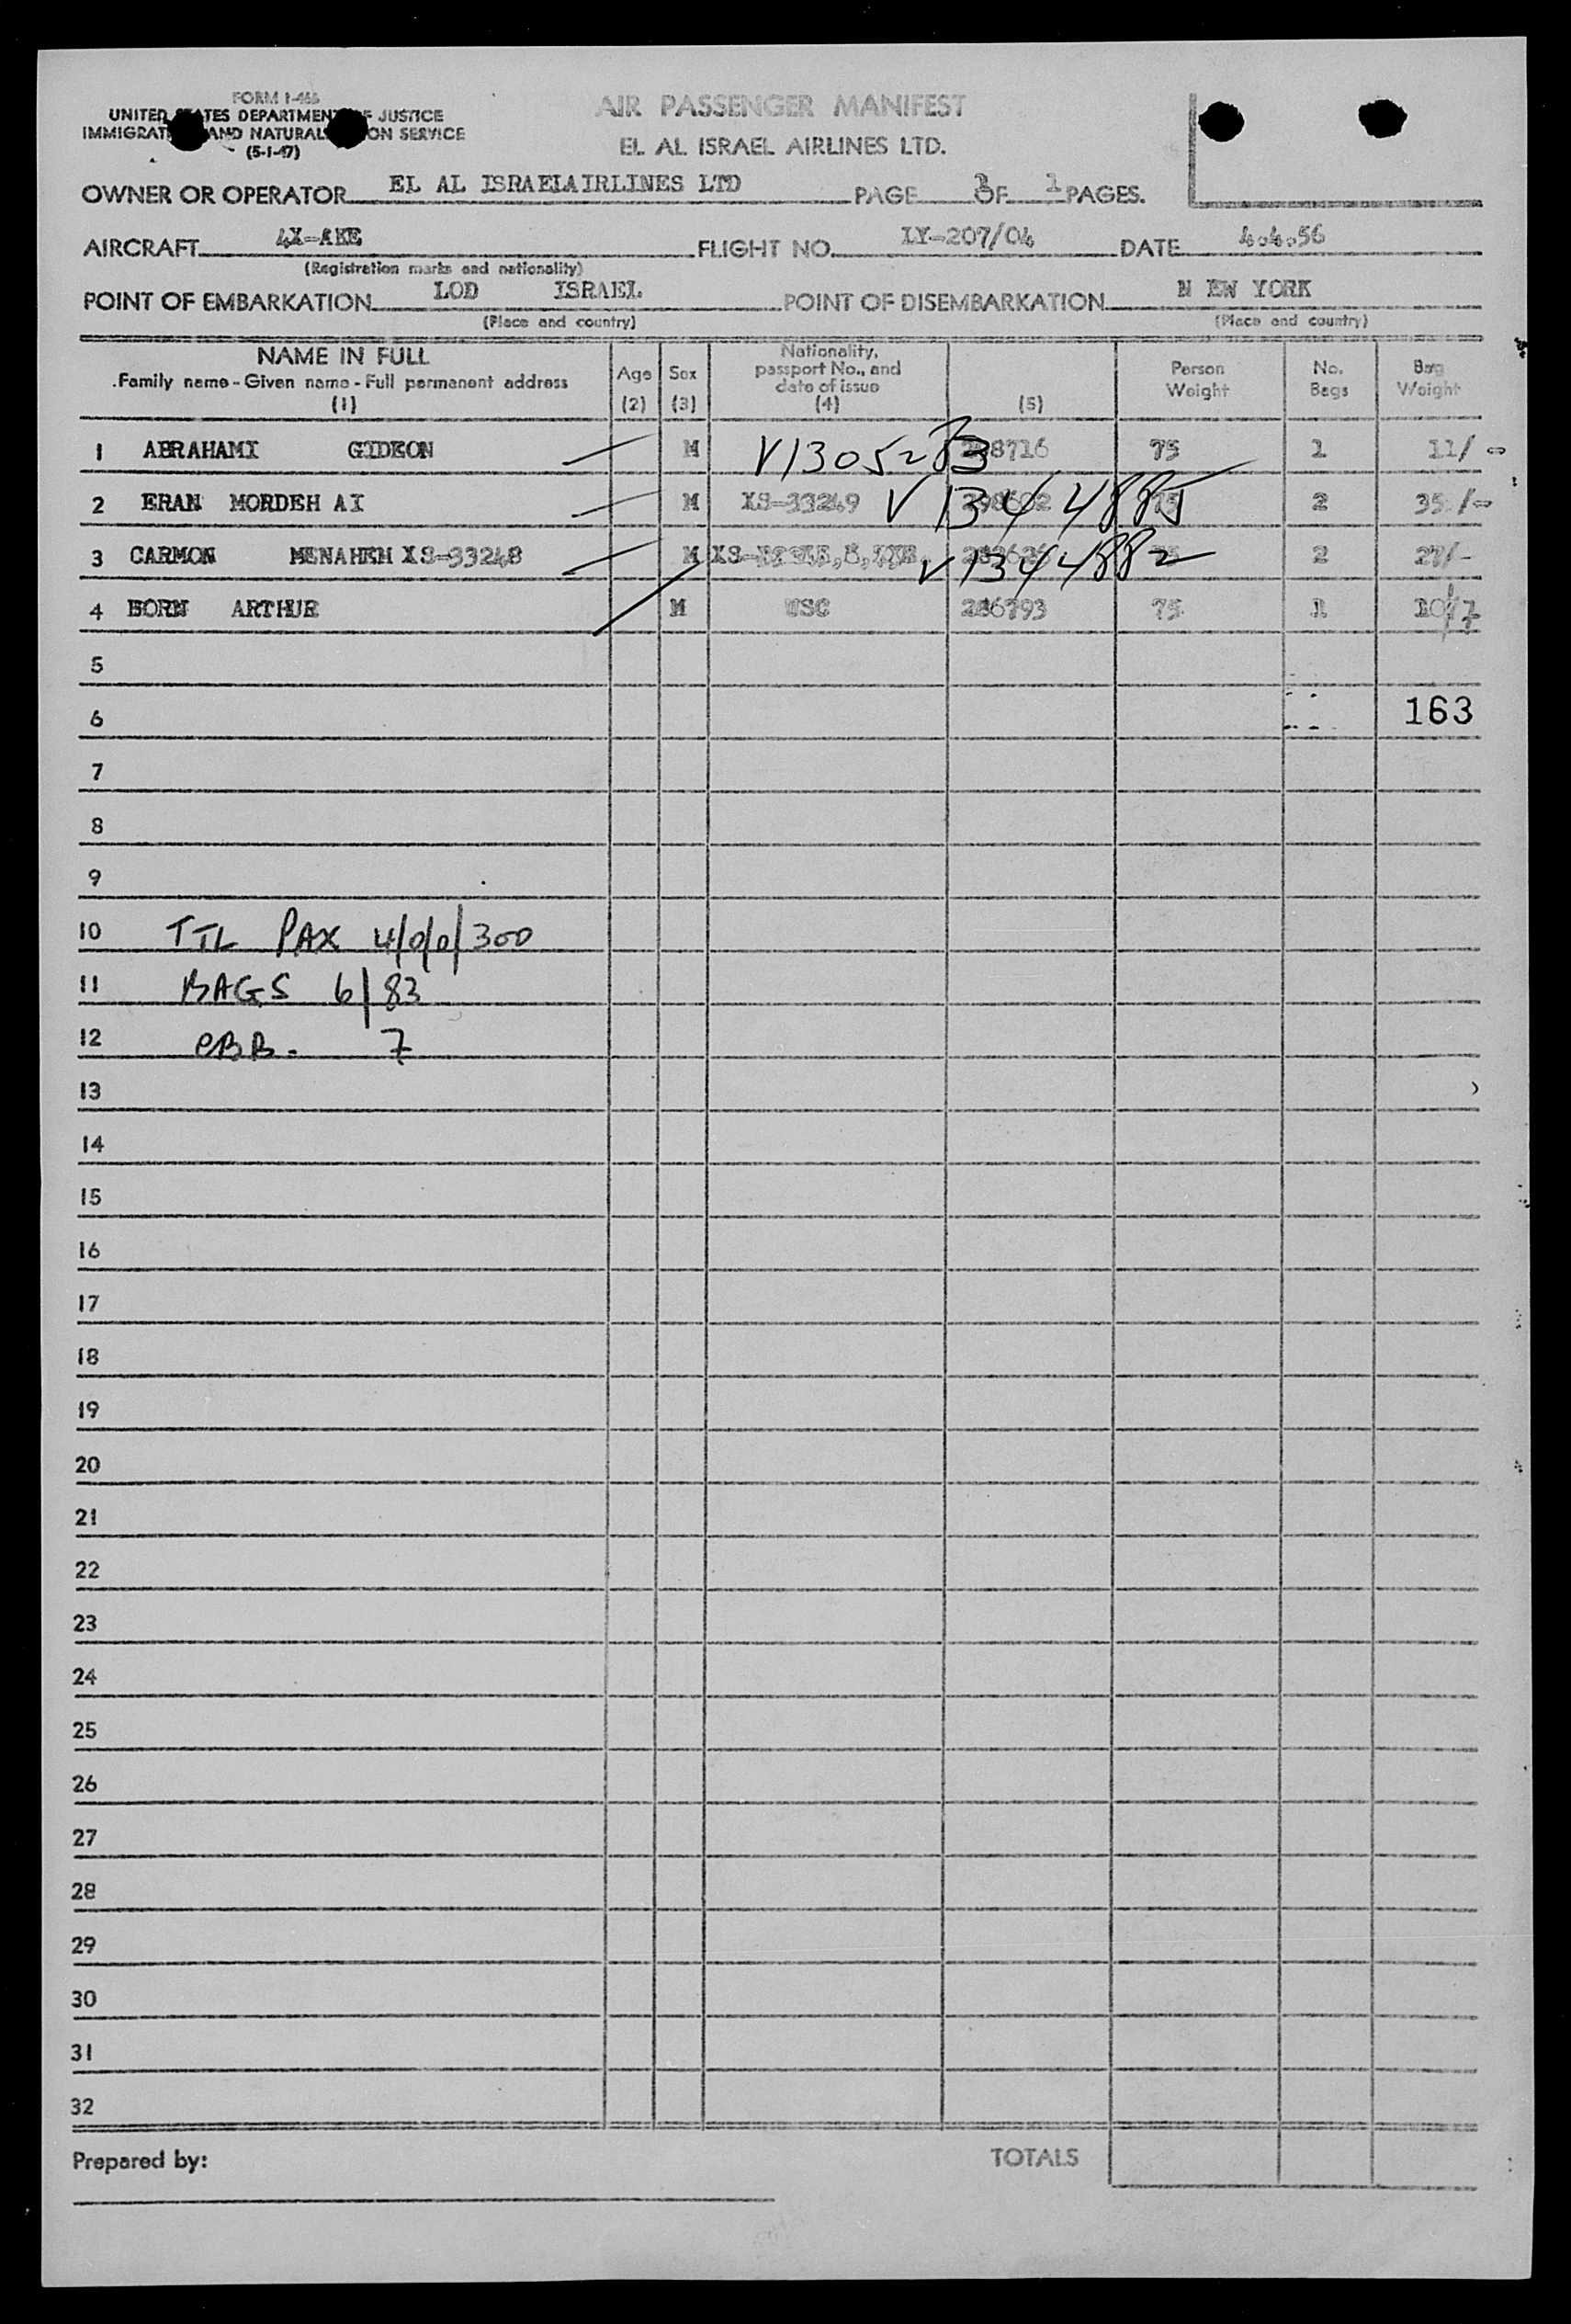 FORM I-466
UNITED STATES DEPARTMENT OF JUSTICE
IMMIGRATION AND NATURALIZATION SERVICE
(5-1-47)
AIR PASSENGER MANIFEST
EL AL ISRAEL AIRLINES LTD.
OWNER OR OPERATOR EL AL ISRAELAIRLINES LTD PAGE 1 OF 1 PAGES.
AIRCRAFT 4X-AKE FLIGHT NO. LY-207/04 DATE 4.4.56
(Registration marks and nationality)
POINT OF EMBARKATION LOD ISRAEL POINT OF DISEMBARKATION N EW YORK
(Place and country) (Place and country)
NAME IN FULL Age Sex Nationality, passport No., and date of issue Person Weight No. Bags Bag Weight
Family name - Given name - Full permanent address
(1) (2) (3) (4) (5)
1 ABRAHAMI GIDEON M V1305283 8716 75 1 11/
2 ERAN MORDEH AI M XS-33249 V1344885 2 35/
3 CARMON MENAHEM XS-33248 M V1344882 2 27/-
4 BORN ARTHUR M USC 246793 75 1 10/7
5
6 163
7
8
9
10 TTL PAX 4/0/0/300
11 BAGS 6/83
12 eBB. 7
13
14
15
16
17
18
19
20
21
22
23
24
25
26
27
28
29
30
31
32
Prepared by: TOTALS